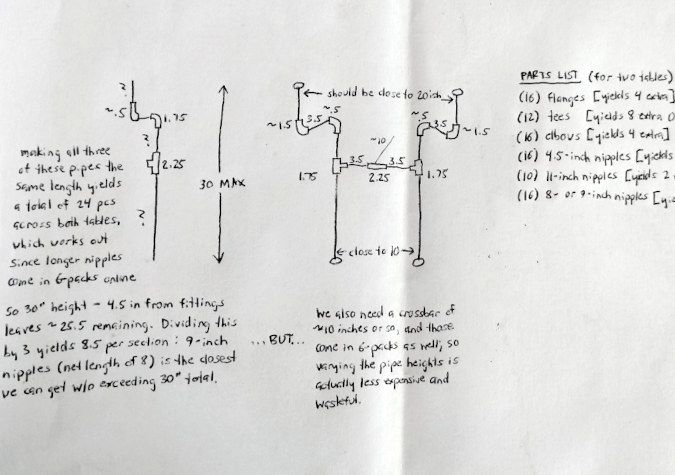 ?
~.5
1.75
?
2.25
?
making all three
of these pipes the
same length yields
a total of 24 pcs
across both tables,
which works out
since longer nipples
come in 6-packs online
30 MAX
should be close to 20ish
~.5
~1.5
3.5
~.5
3.5
~1.5
~10
3.5
3.5
1.75
2.25
1.75
close to 10
PARTS LIST (for two tables)
(16) flanges [yields 4 extra]
(12) tees [yields 8 extra
(16) elbows [yields 4 extra]
(16) 4.5-inch nipples [yields
(10) 11-inch nipples [yields 2
(16) 8- or 9-inch nipples
So 30" height - 4.5 in from fittings
leaves ~25.5 remaining. Dividing this
by 3 yields 8.5 per section: 9-inch
nipples (net length of 8) is the closest
we can get w/o exceeding 30" total.
...BUT...
We also need a crossbar of
~10 inches or so, and those
come in 6-packs as well, so
varying the pipe heights is
actually less expensive and
wasteful.